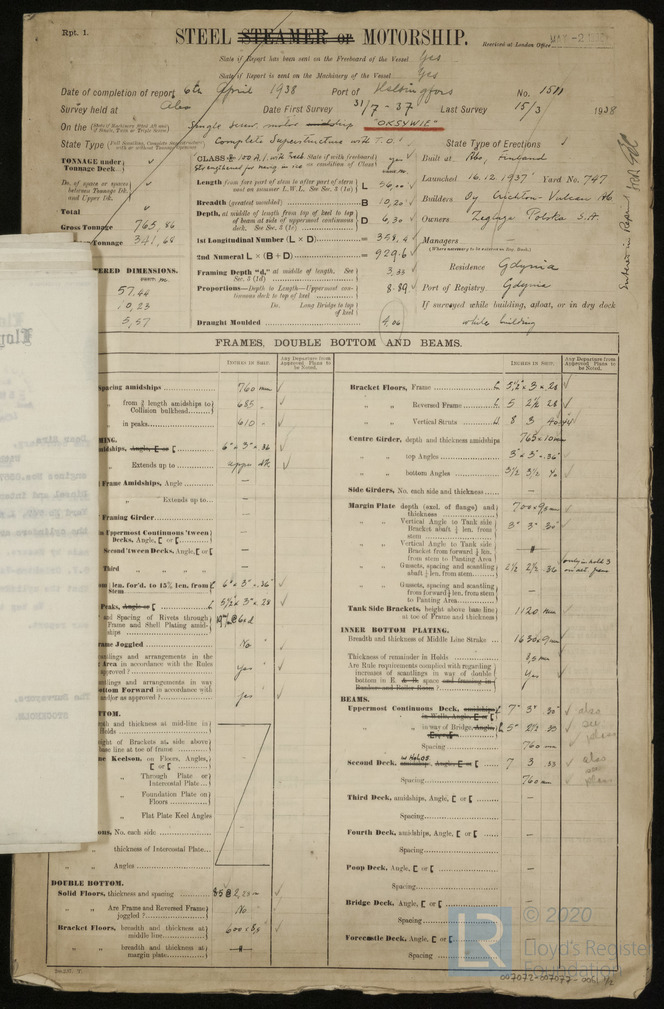 Rpt. 1.
STEEL STEAMER or MOTORSHIP.
Received at London Office
State if Report has been sent on the Freeboard of the Vessel Yes
State if Report is sent on the Machinery of the Vessel Yes
Date of completion of report 6th April 1938 Port of Helsingfors No. 1511
Survey held at Abo Date First Survey 31/7-37 Last Survey 15/3 1938
On the Single screw motor "OKSYWIE"
State Type Complete Superstructure with T.O. State Type of Erections
TONNAGE under Tonnage Deck
Do. of space or spaces between Tonnage Dk. and Upper Dk.
Total
Gross Tonnage 765,86
Tonnage 341,64
CLASS 100 A.1. with freeb. State if with freeboard as condition of Class yes
Strengthened for navig. in ice
Length from fore part of stem to after part of stern post on summer L.W.L. See Sec. 3 (1a) L 56,00
Breadth (greatest moulded) B 10,20
Depth, at middle of length from top of keel to top of beam at side of uppermost continuous deck. See Sec. 3 (1c) D 6,30
1st Longitudinal Number (L × D) = 358,4
2nd Numeral L × (B + D) = 929,6
Framing Depth "d," at middle of length. See Sec. 3 (1d) 3,33
Proportions—Depth to Length—Uppermost continuous deck to top of keel 8.89
Do. Long Bridge to top of keel
Draught Moulded 4,06
Built at Abo, Finland
Launched 16.12.1937 Yard No. 747
Builders Oy Crichton-Vulcan Ab
Owners Zegluga Polska S.A.
Managers —
(Where necessary to be entered in Reg. Book.)
Residence Gdynia
Port of Registry Gdynia
If surveyed while building, afloat, or in dry dock
while building
ERED DIMENSIONS.
57.44
10,23
5,57
FRAMES, DOUBLE BOTTOM AND BEAMS.
INCHES IN SHIP.
Any Departure from Approved Plans to be Noted.
INCHES IN SHIP.
Any Departure from Approved Plans to be Noted.
Spacing amidships 760 mm
" from ⅗ length amidships to Collision bulkhead 685 "
" in peaks 610 "
MING.
midships, Angle, E or [ 6" 3" 36
" Extends up to
Frame Amidships, Angle —
" Extends up to —
Framing Girder —
Uppermost Continuous 'tween Decks, Angle, [ or [ —
Second 'tween Decks, Angle, [ or [ —
Third " " —
len. for'd. to 15% len. from Stem 6" 3" .36"
Peaks, Angle or [ 5½" 3" .28
and Spacing of Rivets through Frame and Shell Plating amidships
rame Joggled No
antlings and arrangements in the Area in accordance with the Rules approved? yes
antlings and arrangements in way Bottom Forward in accordance with and/or as approved? yes
TTOM.
pth and thickness at mid-line in Holds
ight of Brackets at side above base line at toe of frame
ne Keelson, on Floors, Angles, [ or [
" Through Plate or Intercostal Plate
" Foundation Plate on Floors
" Flat Plate Keel Angles
ons, No. each side
" thickness of Intercostal Plate
" Angles
DOUBLE BOTTOM.
Solid Floors, thickness and spacing
" " Are Frame and Reversed Frame joggled? No
Bracket Floors, breadth and thickness at middle line 600 x 8,5
" " breadth and thickness at margin plate
Bracket Floors, Frame 5½" x 3 x 28
" " Reversed Frame 5 2½ .28
" " Vertical Struts 8 3 40
Centre Girder, depth and thickness amidships 765 x 10 mm
" " top Angles 3" x 3" .36"
" " bottom Angles 3½ 3½ 40
Side Girders, No. each side and thickness —
Margin Plate depth (excl. of flange) and thickness 700 x 9 mm
" " Vertical Angle to Tank side Bracket abaft ¼ len. from stem 3" 3" 30"
" " Vertical Angle to Tank side Bracket from forward ¼ len. from stem to Panting Area
" " Gussets, spacing and scantling abaft ¼ len. from stem 2½ 2½ 36
" " Gussets, spacing and scantling from forward ¼ len. from stem to Panting Area —
Tank Side Brackets, height above base line at toe of Frame and thickness 1120 mm
INNER BOTTOM PLATING.
Breadth and thickness of Middle Line Strake 1630 x 9 mm
Thickness of remainder in Holds 8,5 mm
Are Rule requirements complied with regarding increases of scantlings in way of double bottom in E. & B. space and framing in Bunkers and Boiler Room? Yes
BEAMS.
Uppermost Continuous Deck, amidships 7" 3" 35" also
in Wells, Angle, [ or [ see
" " in way of Bridge, Angle, 5" 2½ 33 plans
Spacing 760 mm
Second Deck, in Holds Angle, [ or [ 7 3 33 also
Spacing 760 mm plans
Third Deck, amidships, Angle, [ or [ —
Spacing —
Fourth Deck, amidships, Angle, [ or [ —
Spacing —
Poop Deck, Angle, [ or [ —
Spacing —
Bridge Deck, Angle, [ or [ —
Spacing —
Forecastle Deck, Angle, [ or [ —
Spacing —
LR
© 2020
Lloyd's Register
Foundation
007072-007077-0061 1/2